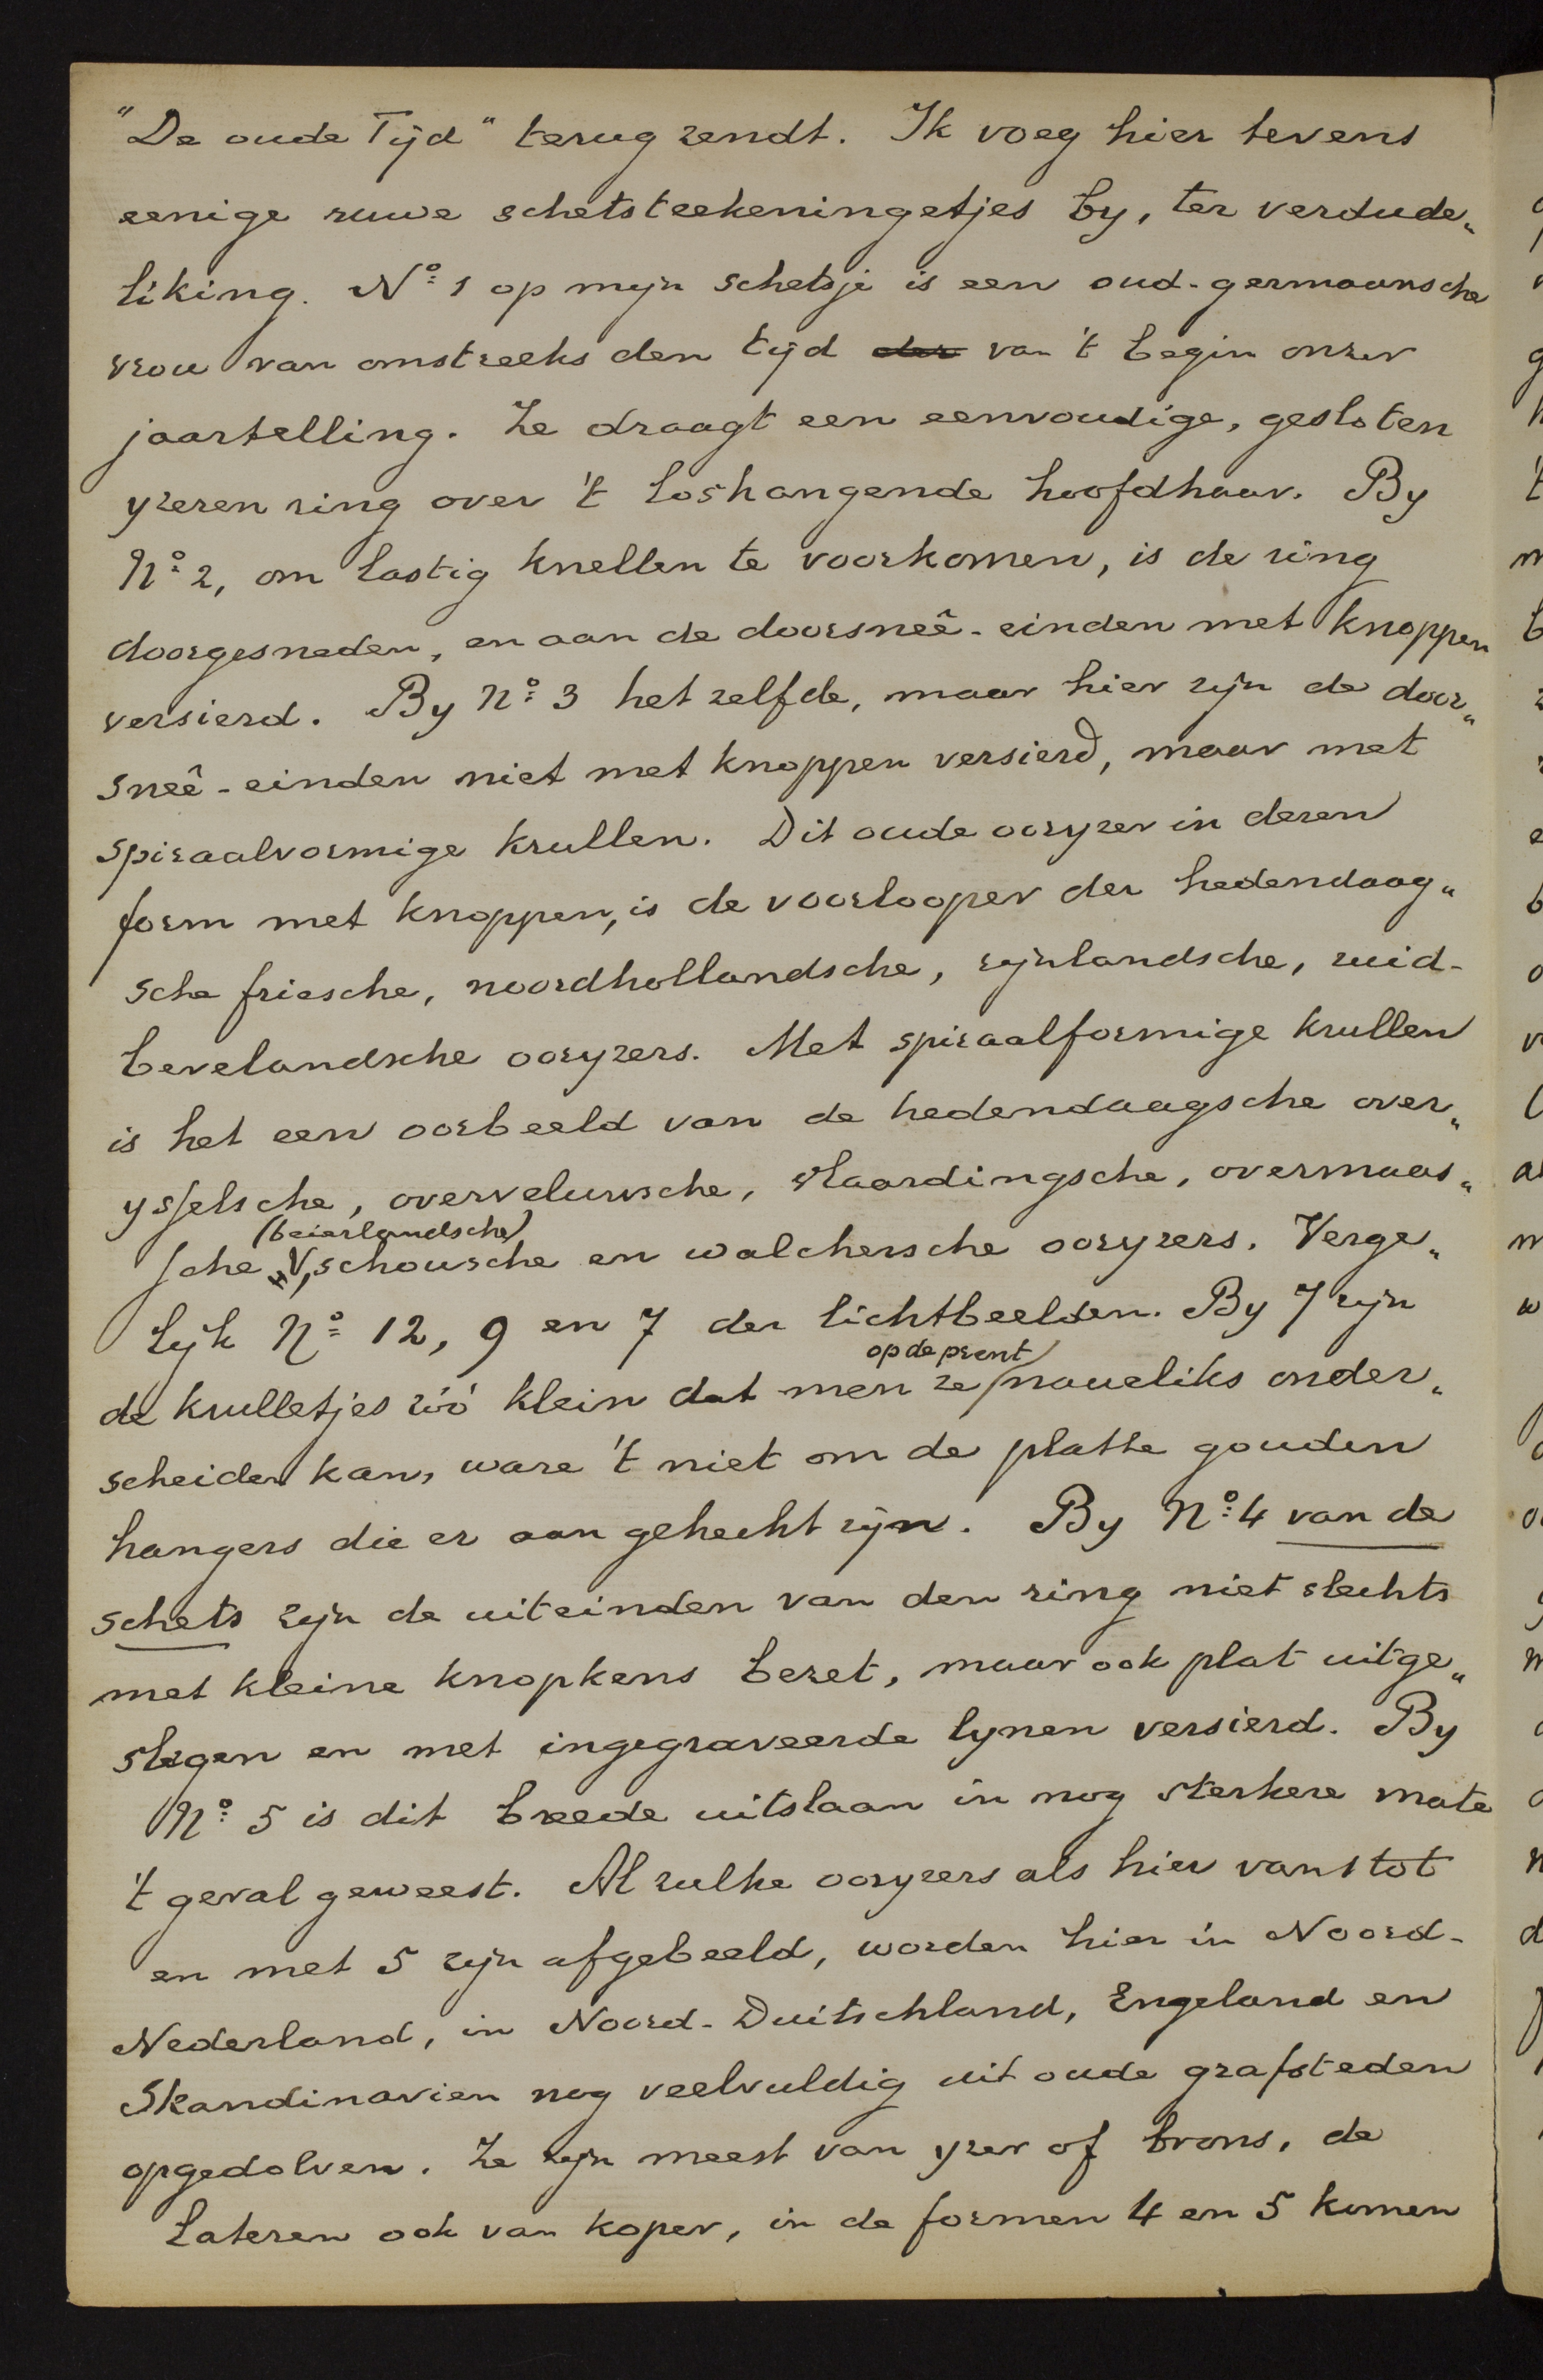 "De oude Tijd" terug zendt. Ik voeg hier tevens
eenige ruwe schetsteekeningetjes by, ter verdude„
liking. No 1 op mijn schetsje is een oud-germaansche
vrou van omstreeks den tijd der van 't begin onzer
jaartelling. Ze draagt een eenvoudige, gesloten
yzeren ring over 't loshangende hoofdhaar. By
No 2, om lastig knellen te voorkomen, is de ring
doorgesneden, en aan de doorsneê-einden met knoppen
versierd. By No 3 het zelfde, maar hier zijn de door„
sneê-einden niet met knoppen versierd, maar met
spiraalvormige krullen. Dit oude ooryzer in dezen
form met knoppen, is de voorlooper der hedendaag„
sche friesche, noordhollandsche, rijnlandsche, zuid-
bevelandsche ooryzers. Met spiraalformige krullen
is het een oorbeeld van de hedendaagsche over„
ysselsche, overveluwsche, vlaardingsche, overmaas„
(beierlandsche)
sche, schousche en walchersche ooryzers. Verge„
lijk No 12, 9 en 7 der lichtbeelden. By 7 zijn
op de prent
de krulletjes zóó klein dat men ze naueliks onder„
scheiden kan, ware 't niet om de platte gouden
hangers die er aan gehecht zijn. By No 4 van de
schets zijn de uiteinden van den ring niet slechts
met kleine knopkens bezet, maar ook plat uitge„
slagen en met ingegraveerde lynen versierd. By
No 5 is dit breede uitslaan in nog sterkere mate
't geval geweest. Al zulke ooryzers als hier van 1 tot
en met 5 zijn afgebeeld, worden hier in Noord-
Nederland, in Noord-Duitschland, Engeland en
Skandinavien nog veelvuldig uit oude grafsteden
opgedolven. Ze zijn meest van yzer of brons, de
lateren ook van koper, in de formen 4 en 5 komen